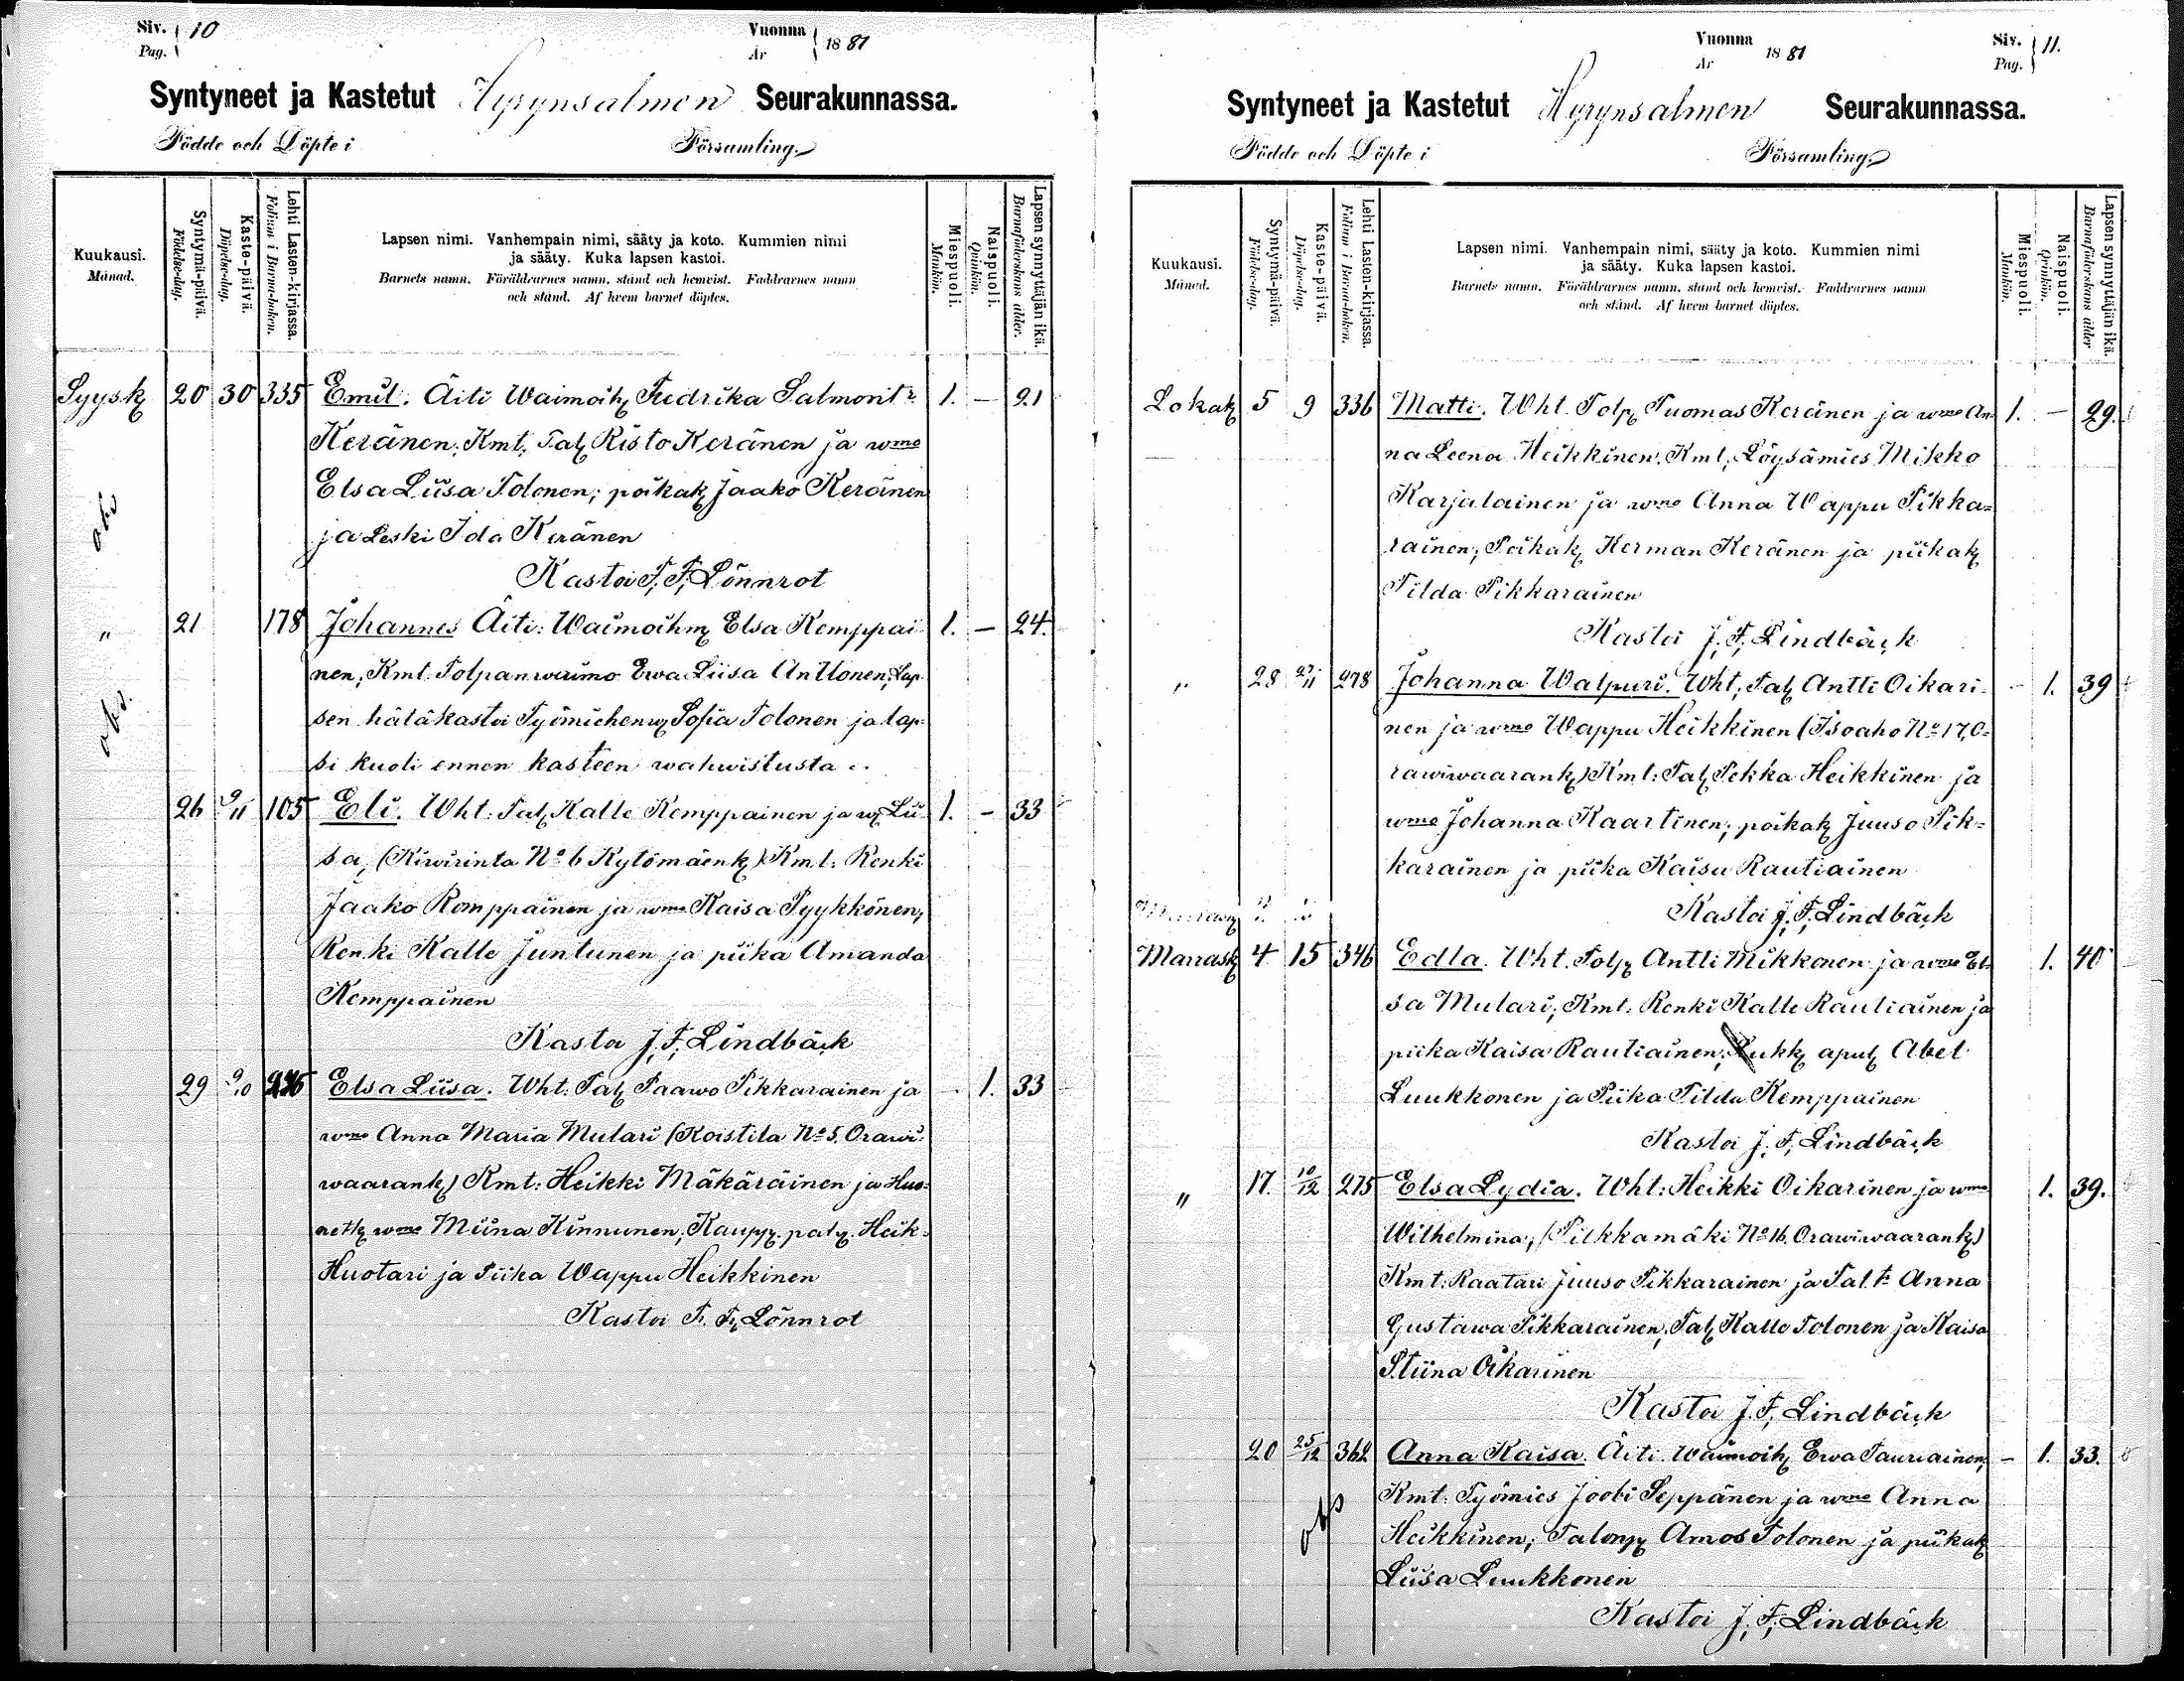 Siv. 10
Pag.
Vuonna 1881
År
Syntyneet ja Kastetut Hyrynsalmen Seurakunnassa.
Födde och Döpte i Församling.
Kuukausi.
Månad.
Syntymä-päivä.
Födelse-dag.
Kaste-päivä.
Döpelse-dag.
Lehti Lasten-kirjassa.
Folium i Barna-boken.
Lapsen nimi. Vanhempain nimi, sääty ja koto. Kummien nimi
ja sääty. Kuka lapsen kastoi.
Barnets namn. Föräldrarnes namn, stånd och hemvist. Faddrarnes namn
och stånd. Af hvem barnet döptes.
Miespuoli.
Mankön.
Naispuoli.
Qvinkön.
Lapsen synnyttäjän ikä.
Barnaföderskans ålder.
Syysk 20 30 335 Emil. Äiti Waimoih Fredrika Salmont:r 1. — 21
Keränen; Kmt; Tal Risto Keränen ja wmo
Elsa Liisa Tolonen; poikak Jaako Keränen
obs ja Leski Ida Keränen
Kastoi F. F. Lönnrot
" 21 178 Johannes Äiti: Waimoihm Elsa Kemppai- 1. — 24.
nen; Kmt. Tolpan waimo Ewa Liisa Anttonen; Lap-
obs. sen hätäkastoi Työmiehenw Sofia Tolonen ja lap-
si kuoli ennen kasteen wahwistusta
26 9/11 105 Eli. Wht: Tal Kalle Kemppainen ja w Lii- 1. - 33
sa, (Kiwirinta No 6 Kytömäenk) Kmt: Renki
Jaako Romppainen ja wmo Kaisa Pyykkönen,
Renki Kalle Juntunen ja piika Amanda
Kemppainen
Kastoi J. F. Lindbäck
29 9/10 Elsa Liisa. Wht: Tal Paawo Pikkarainen ja - 1. 33
wmo Anna Maria Mulari (Koistila No 5. Orawi-
waarank) Kmt: Heikki Mäkäräinen ja Huo-
wmo Miina Kinnunen; Kaupp. palw. Heik-
Huotari ja Piika Wappu Heikkinen
Kastoi F. F. Lönnrot
Vuonna 1881
År
Siv. 11.
Pag.
Syntyneet ja Kastetut Hyrynsalmen Seurakunnassa.
Födde och Döpte i Församling.
Kuukausi.
Månad.
Syntymä-päivä.
Födelse-dag.
Kaste-päivä.
Döpelse-dag.
Lehti Lasten-kirjassa.
Folium i Barna-boken.
Lapsen nimi. Vanhempain nimi, sääty ja koto. Kummien nimi
ja sääty. Kuka lapsen kastoi.
Barnets namn. Föräldrarnes namn, stånd och hemvist. Faddrarnes namn
och stånd. Af hvem barnet döptes.
Miespuoli.
Mankön.
Naispuoli.
Qvinkön.
Lapsen synnyttäjän ikä.
Barnaföderskans ålder
Lokak 5 9 336 Matti. Wht. Tolp Tuomas Keränen ja wmo An- 1. — 29.
na Leena Heikkinen. Kmt; Löysämies Mikko
Karjulainen ja wmo Anna Wappu Pikka-
rainen; Poikak Herman Keränen ja piikak
Tilda Pikkarainen
Kastoi J. F. Lindbäck
" 28 27/11 278 Johanna Walpuri. Wht; Tal Antti Oikari- - 1. 39
nen ja wmo Wappu Heikkinen (Isoaho No 17, O-
rawiwaarank) Kmt: Tal Pekka Heikkinen ja
wmo Johanna Kaartinen; poikak Juuso Pik-
karainen ja piika Kaisa Rautiainen
Kastoi J. F. Lindbäck
Marrask 4 15 346 Edla. Wht. Tolp Antti Mikkonen ja wmo El- 1. 40
sa Mulari; Kmt. Renki Kalle Rautiainen ja
piika Kaisa Rautiainen; Lukk apul Abel
Luukkonen ja Piika Tilda Kemppainen
Kastoi J. F. Lindbäck
" 17. 10/12 275 Elsa Lydia. Wht: Heikki Oikarinen ja wmo 1. 39.
Wilhelmina; (Pilkkamäki No 16. Orawiwaarank)
Kmt: Raatari Juuso Pikkarainen ja Tal.tr Anna
Gustawa Pikkarainen; Tal Kalle Tolonen ja Kaisa
Stiina Oikarinen
Kastoi J. F. Lindbäck
20 25/12 362 Anna Kaisa. Äiti. Waimoih Ewa Tauriainen, — 1. 33.
obs Kmt: Työmies Joobi Seppänen ja wmo Anna
Heikkinen; Talonp Amos Tolonen ja piikak
Liisa Luukkonen
Kastoi J. F. Lindbäck